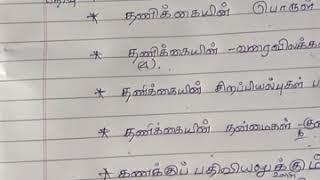 * தணிக்கையின் பொருள்
* தணிக்கையின் -வரைவிலக்க
(4).
* தணிக்கையின் சிறப்பியல்புகள் ப
* தணிக்கையின் நன்மைகள் -
* கணக்குப் பதிவியலுக்கும்